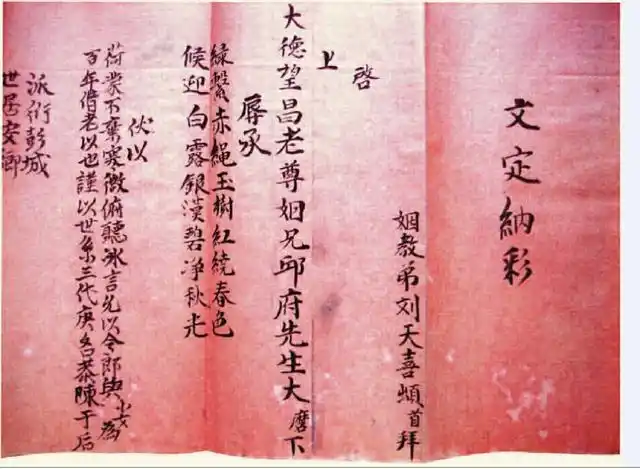 文定納彩
姻教弟刘天喜頓首拜
啓
上
大德望昌老尊姻兄邱府先生大麿下
辱承
緣繫赤绳玉樹紅繞春色
候迎白露銀漢碧净秋光
伏以
荷蒙不棄寒微俯聽冰言允以令郎與小女為
百年偕老以也謹以世系三代庚名恭陳于后
派衍彭城
世居安鄉